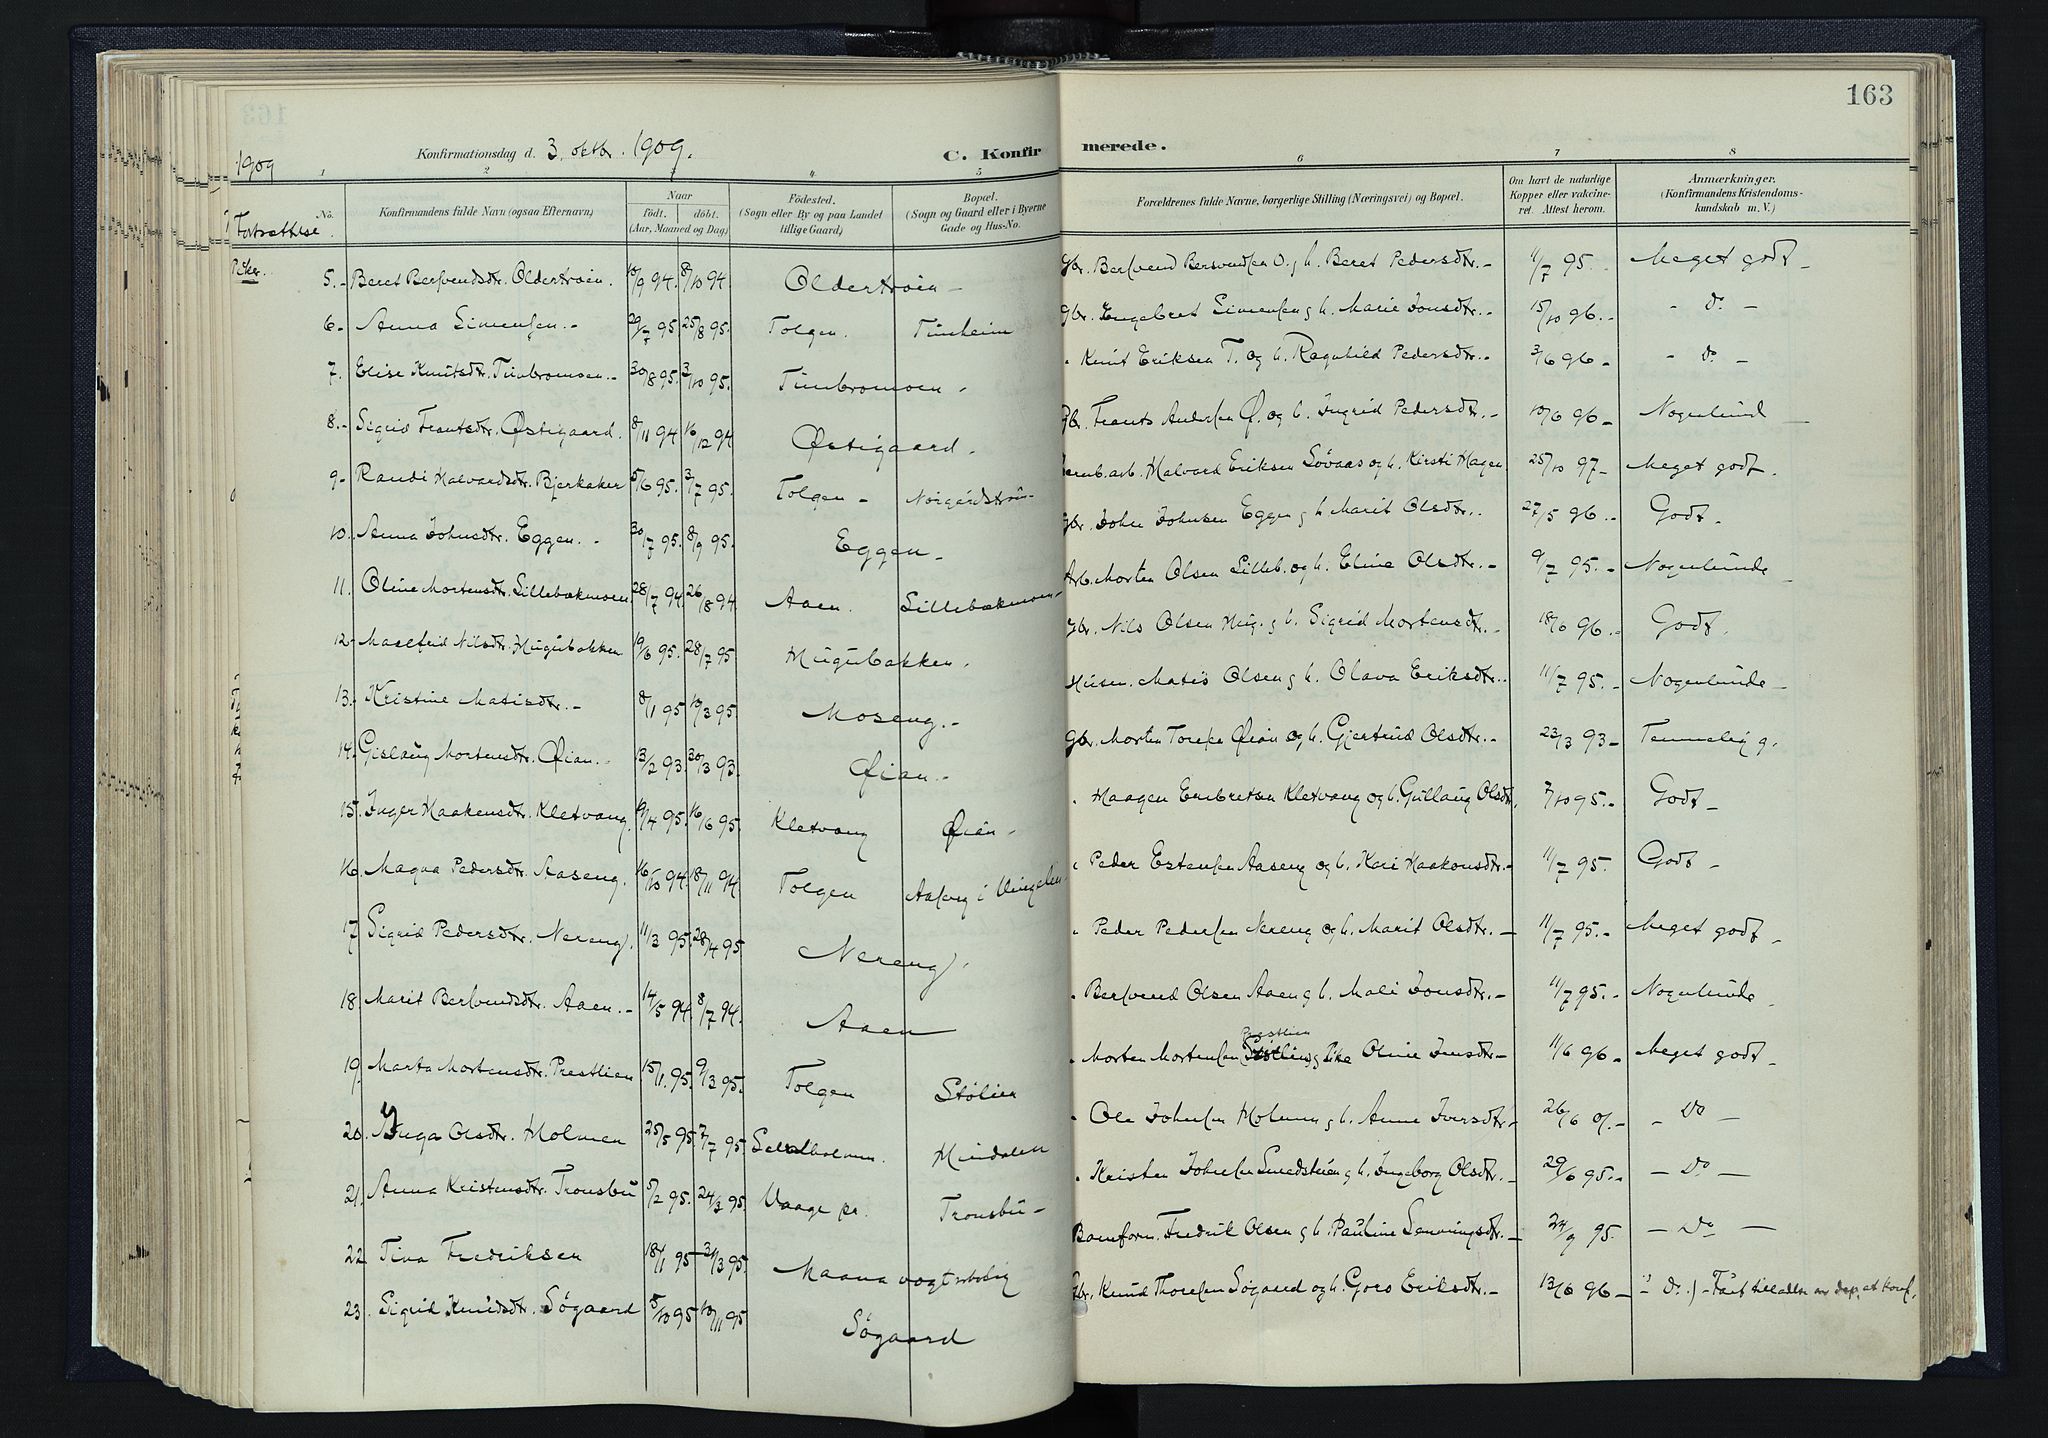 163
1909 Konfirmationsdag d. 3. oktbr. 1909. C. Konfirmerede.
1 2 3 4 5 6 7 8
No. Konfirmandens fulde Navn (ogsaa Efternavn) Naar født. døbt. (Aar, Maaned og Dag) Fødested. (Sogn eller By og paa Landet tillige Gaard) Bopæl. (Sogn og Gaard eller i Byerne Gade og Hus-No. Forældrenes fulde Navne, borgerlige Stilling (Næringsvei) og Bopæl. Om havt de naturlige Kopper eller vakcineret. Attest herom. Anmærkninger. (Konfirmandens Kristendomskundskab m. V.)
Fortsættelse.
Piker.
5. Beret Bersvendsdtr. Oldertrøen. 10/9 94. 8/10 94 Oldertrøen Gbr. Bersvend Bersvendsen O. og h. Beret Pedersdtr. 11/7 95. Meget godt
6 Anna Simensen. 29/7 95. 25/8 95. Tolgen. Timheim Gbr. Engebret Simensen og h. Marie Jonsdtr. 15/10 96. Do
7. Elise Knutsdtr. Timbromoen. 30/8 95. 3/10 95. Timbromoen. Knut Eriksen T. og h. Ragnhild Pedersdtr. 3/6 96 Do
8. Sigrid Frantsdtr. Østigaard. 8/11 94. 16/12 94 Østigaard. Gbr. Frants Andersen Ø. og h. Ingrid Pedersdtr. 10/6 96 Nogenlund
9 Randi Halvardsdtr. Bjerkaker 5/6 95. 3/7 95. Tolgen Norgårdstrøn Jernb.arb. Halvard Eriksen Løvaas og h. Kirsti Hagen 25/10 97 Meget godt.
10. Anna Johnsdtr. Eggen. 20/7 95. 8/9 95. Eggen Gbr. John Johnsen Eggen og h. Marit Olsdtr. 27/5 96. Godt.
11. Oline Mortensdtr. Lillebækmoen 28/7 94. 26/8 94. Aaen. Lillebækmoen Arb. Morten Olsen Lilleb. og h. Eline Olsdtr. 9/7 95. Nogenlunde
12 Maselfrid Nilsdtr. Hugubakken 19/6 95. 28/7 95 Hugubakken. Gbr. Nils Olsen Hug. og h. Sigrid Mortensdtr. 18/6 96. Godt.
13. Kristine Matisdtr. 8/1 95 10/3 95. Moseng. Husm. Matis Olsen og h. Olava Eriksdtr. 11/7 95. Nogenlunde
14. Gislaug Mortensdtr. Øian. 13/2 93. 30/3 93. Øian. Gbr. Morten Toresen Øian og h. Gjertrud Olsdtr. 23/3 93 Temmelig g.
15. Inger Haakensdtr. Kletvang. 19/4 95. 16/6 95. Kletvang Øian Haagen Enbretsen Kletvang og h. Gullaug Olsdtr. 7/10 95. Godt
16. Magna Pedersdtr. Aaseng. 16/10 94. 18/11 94 Tolgen Aaseng i Vingelen Peder Estensen Aaseng og h. Kari Haakonsdtr. 11/7 95. Godt
17 Sigrid Pedersdtr. Nereng. 11/3 95. 28/4 95 Nereng. Peder Pedersen Nereng og h. Marit Olsdtr. 11/7 95. Meget godt
18. Marit Bersvendsdtr. Aaen. 14/5 94 8/7 94. Aaen Bersvend Olsen Aaen og h. Mali Jonsdtr. 11/7 95. Nogenlunde
19. Marta Mortensdtr. Prestlien 15/1. 95. 9/3 95. Tolgen Stølien Morten Mortensen Prestlien og Pike Oline Jonsdtr 11/6 96 Meget godt
20. Inga Olsdtr. Holmen 25/5 95. 7/7 95 Hindalen Ole Johnsen Holmen og h. Anne Iversdtr 26/6 01. Do
21. Anna Kristensdtr. Tronsbu 5/2 95. 24/3 95. Vaage pr. Tronsbu Kristen Johnsen Smedstuen og h. Ingeborg Olsdtr. 29/6 95. Do
22 Tina Fredriksen 18/1 95 31/3 95. Maana vogterbolig Baneform. Fredrik Olsen og h. Pauline Lenningsdtr. 24/9 95. Do
23. Sigrid Knudsdtr. Søgaard 8/10 95 10/11 95 Søgaard Gbr. Knud Thoresen Søgaard og h. Goro Eriksdtr. 13/6 96 Do.) Faat tilladelse av dep. at konf.